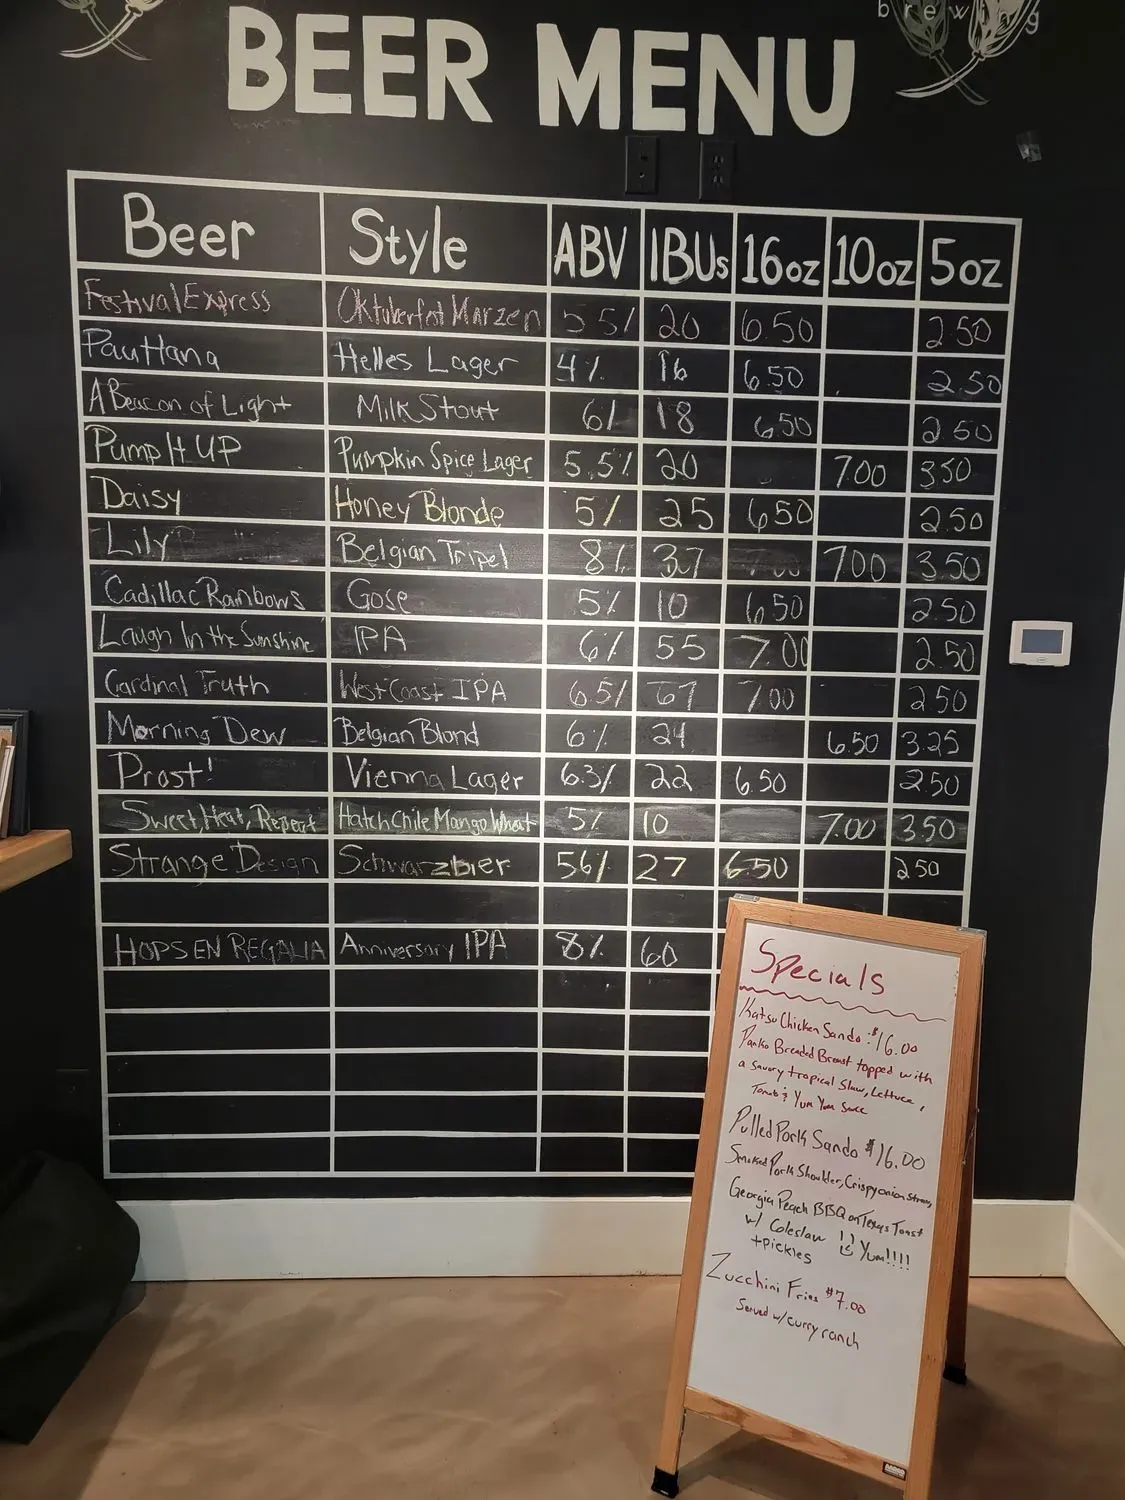 brewing
BEER MENU
Beer Style ABV IBUs 16oz 10oz 5oz
Festival Express Oktoberfest Marzen 5.5% 20 6.50 2.50
Pau Hana Helles Lager 4% 16 6.50 2.50
A Beacon of Light Milk Stout 6% 18 6.50 2.50
Pump It UP Pumpkin Spice Lager 5.5% 20 7.00 3.50
Daisy Honey Blonde 5% 25 6.50 2.50
Lily Belgian Tripel 8% 37 7.00 3.50
Cadillac Rainbows Gose 5% 10 6.50 2.50
Laugh In the Sunshine IPA 6% 55 7.00 2.50
Cardinal Truth West Coast IPA 6.5% 67 7.00 2.50
Morning Dew Belgian Blond 6% 24 6.50 3.25
Prost! Vienna Lager 6.3% 22 6.50 2.50
Sweet, Heat, Repeat Hatch Chile Mango Wheat 5% 10 7.00 3.50
Strange Design Schwarzbier 5.6% 27 6.50 2.50
HOPS EN REGALIA Anniversary IPA 8% 60
Specials
Katsu Chicken Sando : $16.00
Panko Breaded Breast topped with
a savory tropical slaw, Lettuce,
Tomato & Yum Yum Sauce
Pulled Pork Sando $16.00
Smoked Pork Shoulder, Crispy onion straws,
Georgia Peach BBQ on Texas Toast
w/ Coleslaw !! Yum!!!!
+pickles
Zucchini Fries $7.00
Served w/ curry ranch